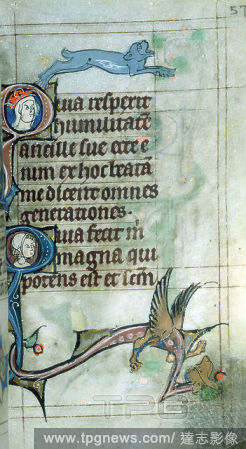 57
Quia respexit
humilitatē
ancille sue ecce e
nim ex hoc beatā
me dicent omnes
generationes.
Quia fecit m
magna qui
potens est et scm
TPG
www.tpgnews.com/ 達志影像